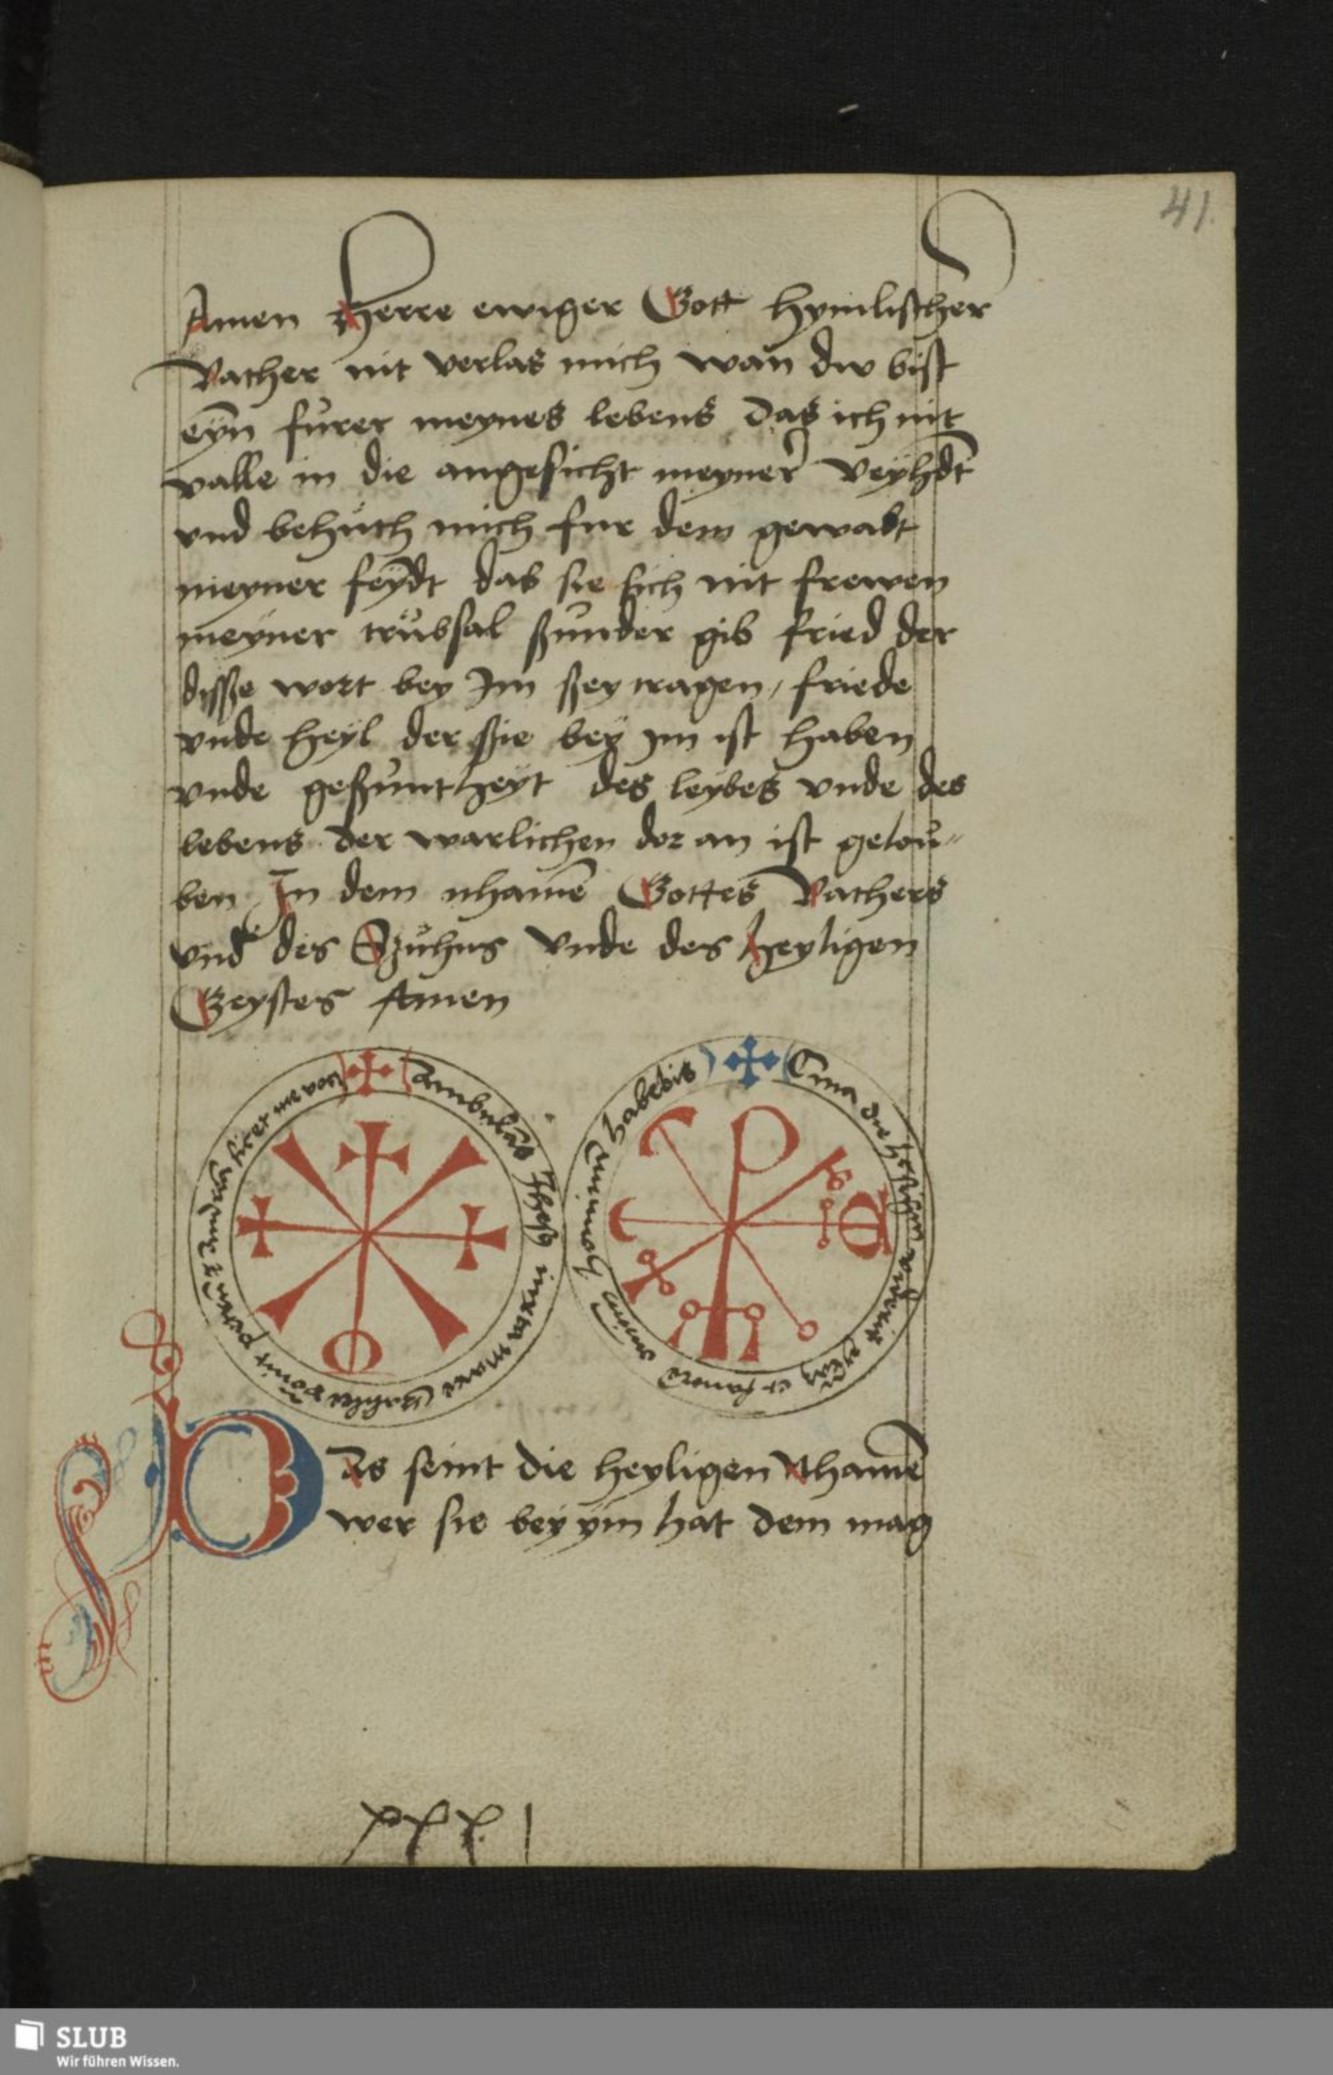 41.
Amen Herre ewiger Gott hymlischer
Vather nit verlas mich wan du bist
eyn fürer meynes lebens das ich nit
valle in die angesicht meyner veyhdt
vnd behüth mich fur dem gewalt
meyner feydt das sie sich nit frewen
meyner trübsal sunder gib fried der
disse wort bey Im sey tragen, friede
vnde heyl der sie bey im ist haben
vnde gesunthzeyt des leybes vnde des
lebens der warlichen dor an ist gelou-
ben In dem nhame Gottes Vathers
vnd des Szuhns vnde des heyligen
Geystes Amen
Ambulās Jhesus iuxta mare Galilee vidit petrū et andreā
Qua die
habebis
Das seint die heyligen Nhame
wer sie bey ym hat dem mag
xxx 1
SLUB
Wir führen Wissen.